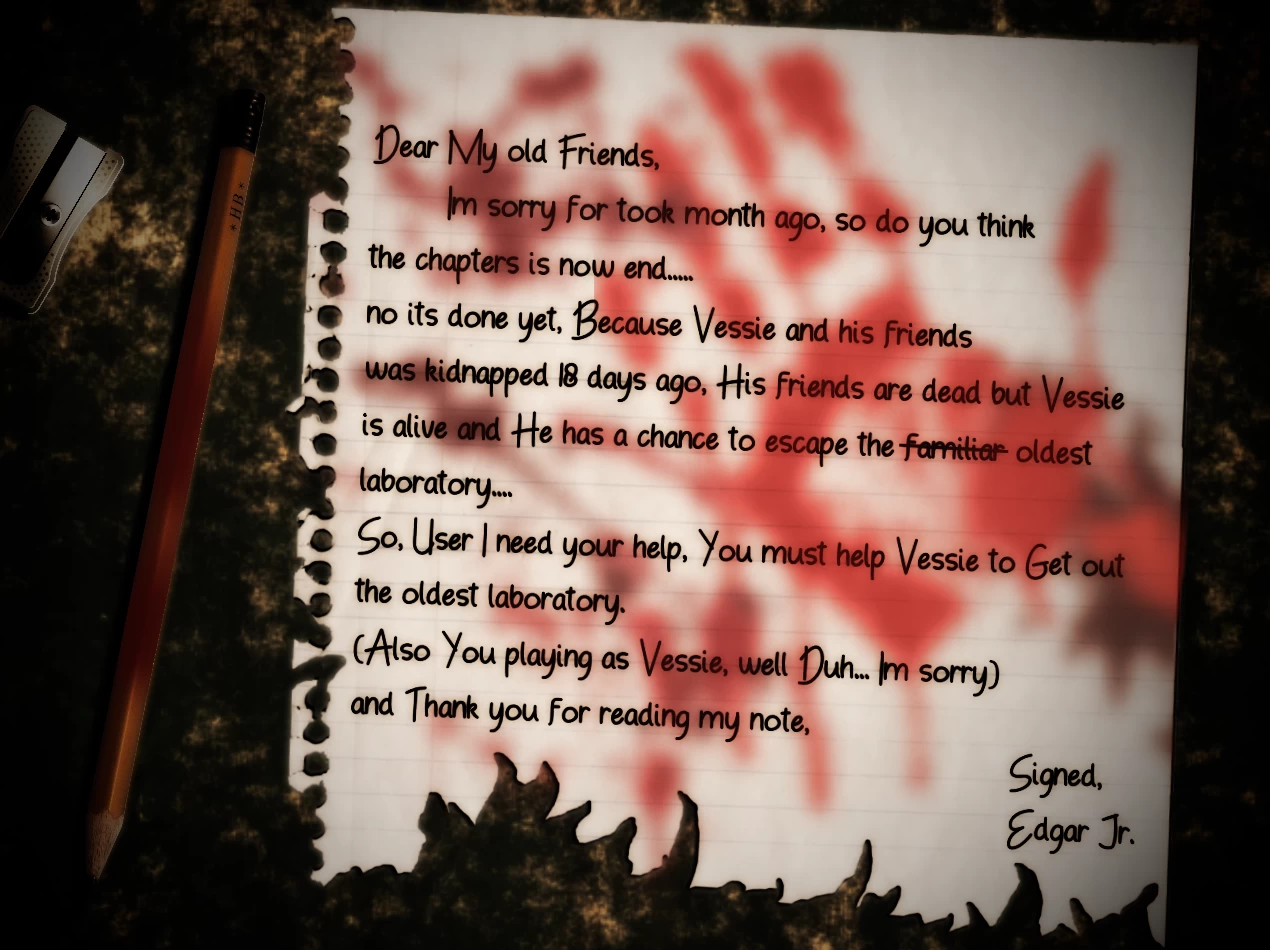 * HB *
Dear My old Friends,
Im sorry for took month ago, so do you think
the chapters is now end.....
no its done yet, Because Vessie and his friends
was kidnapped 18 days ago, His friends are dead but Vessie
is alive and He has a chance to escape the ~~familiar~~ oldest
laboratory....
So, User I need your help, You must help Vessie to Get out
the oldest laboratory.
(Also You playing as Vessie, well Duh... Im sorry)
and Thank you for reading my note,
Signed,
Edgar Jr.